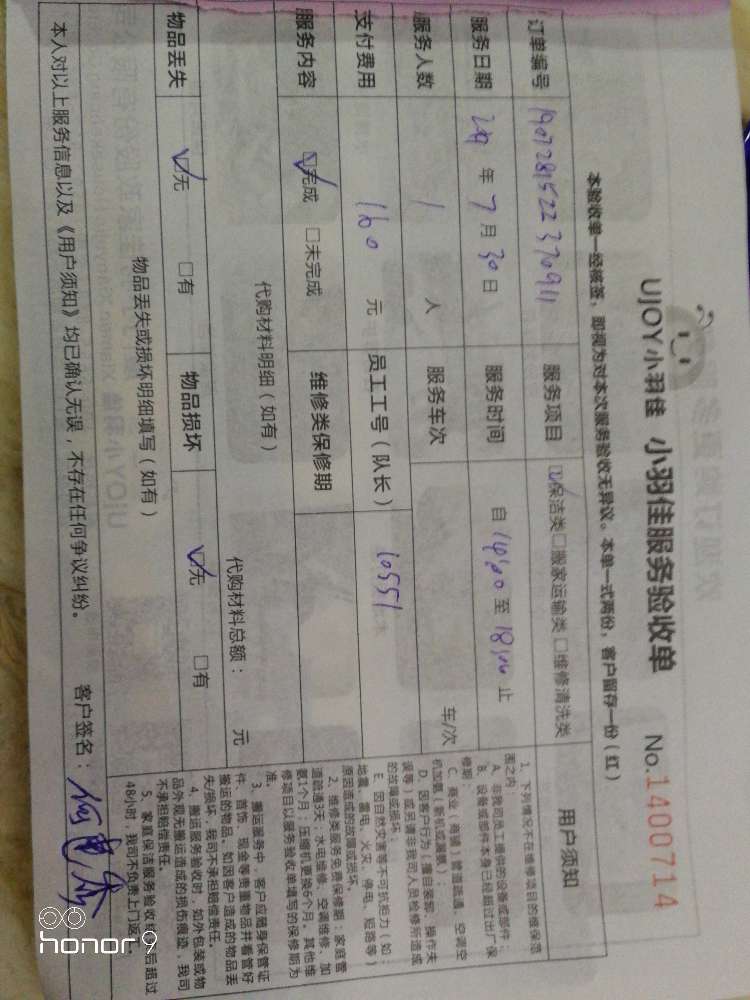 UJOY小羽佳 小羽佳服务验收单 No.1400714
本验收单一经核签，即视为对本次服务验收无异议。本单一式两份，客户留存一份（红）
订单编号 1907281522370911 服务项目 ☑保洁类□搬家运输类□维修清洗类
服务日期 2019年7月30日 服务时间 自14:00至18:00止
服务人数 1人 服务车次 车/次
支付费用 160元 员工工号（队长） 10551
服务内容 ☑完成 □未完成 维修类保修期
代购材料明细（如有） 代购材料总额： 元
物品丢失 ☑无 □有 物品损坏 ☑无 □有
物品丢失或损坏明细填写（如有）
本人对以上服务信息以及《用户须知》均已确认无误，不存在任何争议纠纷。 客户签名：
用户须知
1、下列情况不在维修项目的维保范
围之内：
A、非我司员工提供的设备或部件；
B、设备或部件本身已经超过出厂保
修期；
C、商业（商铺）管道疏通、空调空
机加氨（新机或漏氨）；
D、因客户行为（擅自装卸、操作失
误等）或另请非我司人员检修所造成
的故障或损坏；
E、因自然灾害等不可抗拒力（如：
地震、雷电、火灾、停电、短路等）
原因造成的故障或损坏。
2、维修类服务免费保修期：家庭管
道疏通3天；水电维修、空调维修、加
氨1个月；压缩机更换6个月。其他维
修项目以服务验收单填写的保修期为
准。
3、搬运服务中，客户应随身保管证
件、首饰、现金等贵重物品并看管好
搬运的物品。如因客户造成的物品丢
失/损坏，我司不承担赔偿责任。
4、搬运服务验收时，如外包装或物
品外观无搬运造成的损伤痕迹，我司
不承担赔偿责任。
5、家庭保洁服务验收结束后超过
48小时，我司不负责上门返工。
honor9